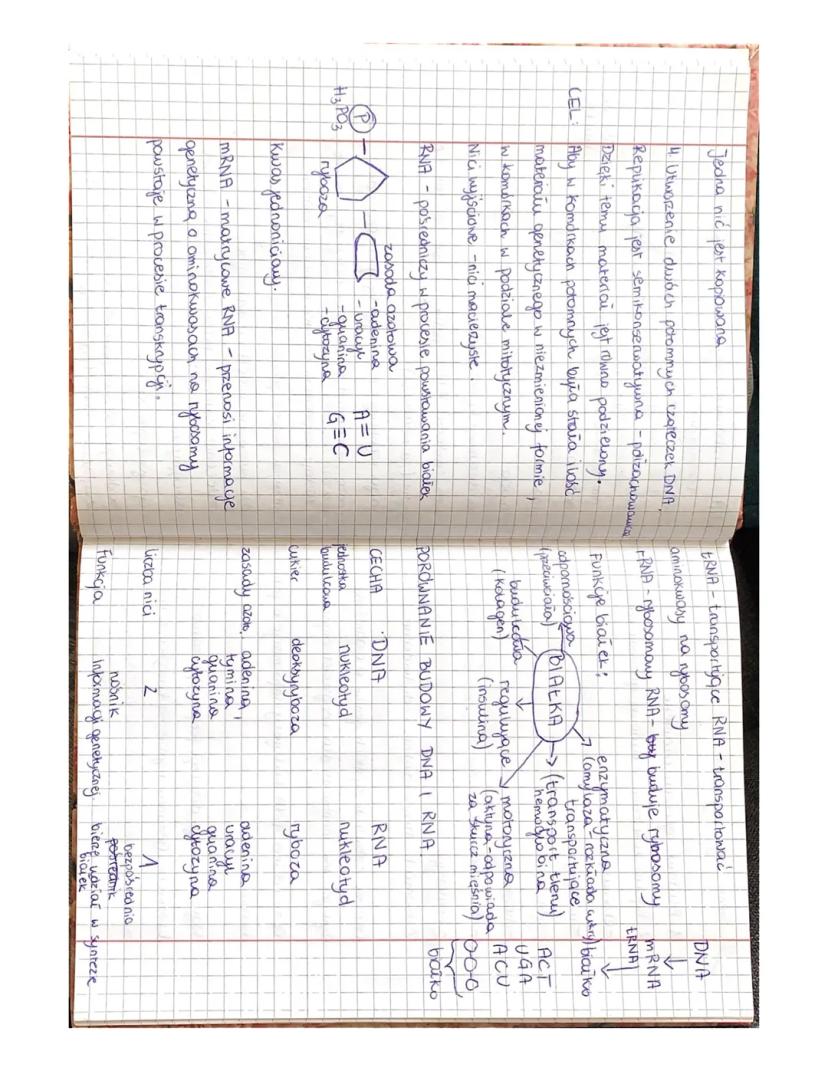 Jedna nić jest kopiowana
4. Utworzenie dwóch potomnych cząteczek DNA.
Replikacja jest semikonserwatywna - półzachowawcza
Dzięki temu materiał jest równo podzielony.
CEL: Aby w komórkach potomnych była stała ilość
materiału genetycznego w niezmienionej formie,
w komórkach w podziale mitotycznym.
Nici wyjściowe - nici macierzyste.
RNA - pośredniczy w procesie powstawania białek
zasada azotowa
- adenina
- uracyl
- guanina
- cytozyna
A = U
G ≡ C
P
H3PO3
ryboza
Kwas jednoniciowy.
mRNA - matrycowe RNA - przenosi informacje
genetyczną o aminokwasach na rybosomy
powstaje w procesie transkrypcji.
tRNA - transportujące RNA - transportować
aminokwasy na rybosomy
rRNA - rybosomowy RNA - buduje rybosomy
Funkcje białek:
BIAŁKA
enzymatyczna
(amylaza - rozkłada cukry)
transportujące
(transport tlenu)
hemoglobina
motoryczna
(aktyna - odpowiada
za skurcz mięśnia)
regulujące
(insulina)
budulcowa
(kolagen)
odpornościowa
(przeciwciała)
DNA
↓
mRNA
tRNA
↓
białko
ACT
UGA
ACU
O-O-O
białko
PORÓWNANIE BUDOWY DNA I RNA.
CECHA DNA RNA
jednostka budulcowa nukleotyd nukleotyd
cukier deoksyryboza ryboza
zasady azot. adenina, tymina, guanina cytozyna adenina uracyl guanina cytozyna
liczba nici 2 1
Funkcja nośnik informacji genetycznej. bezpośrednio pośrednik bierze udział w syntezie białek